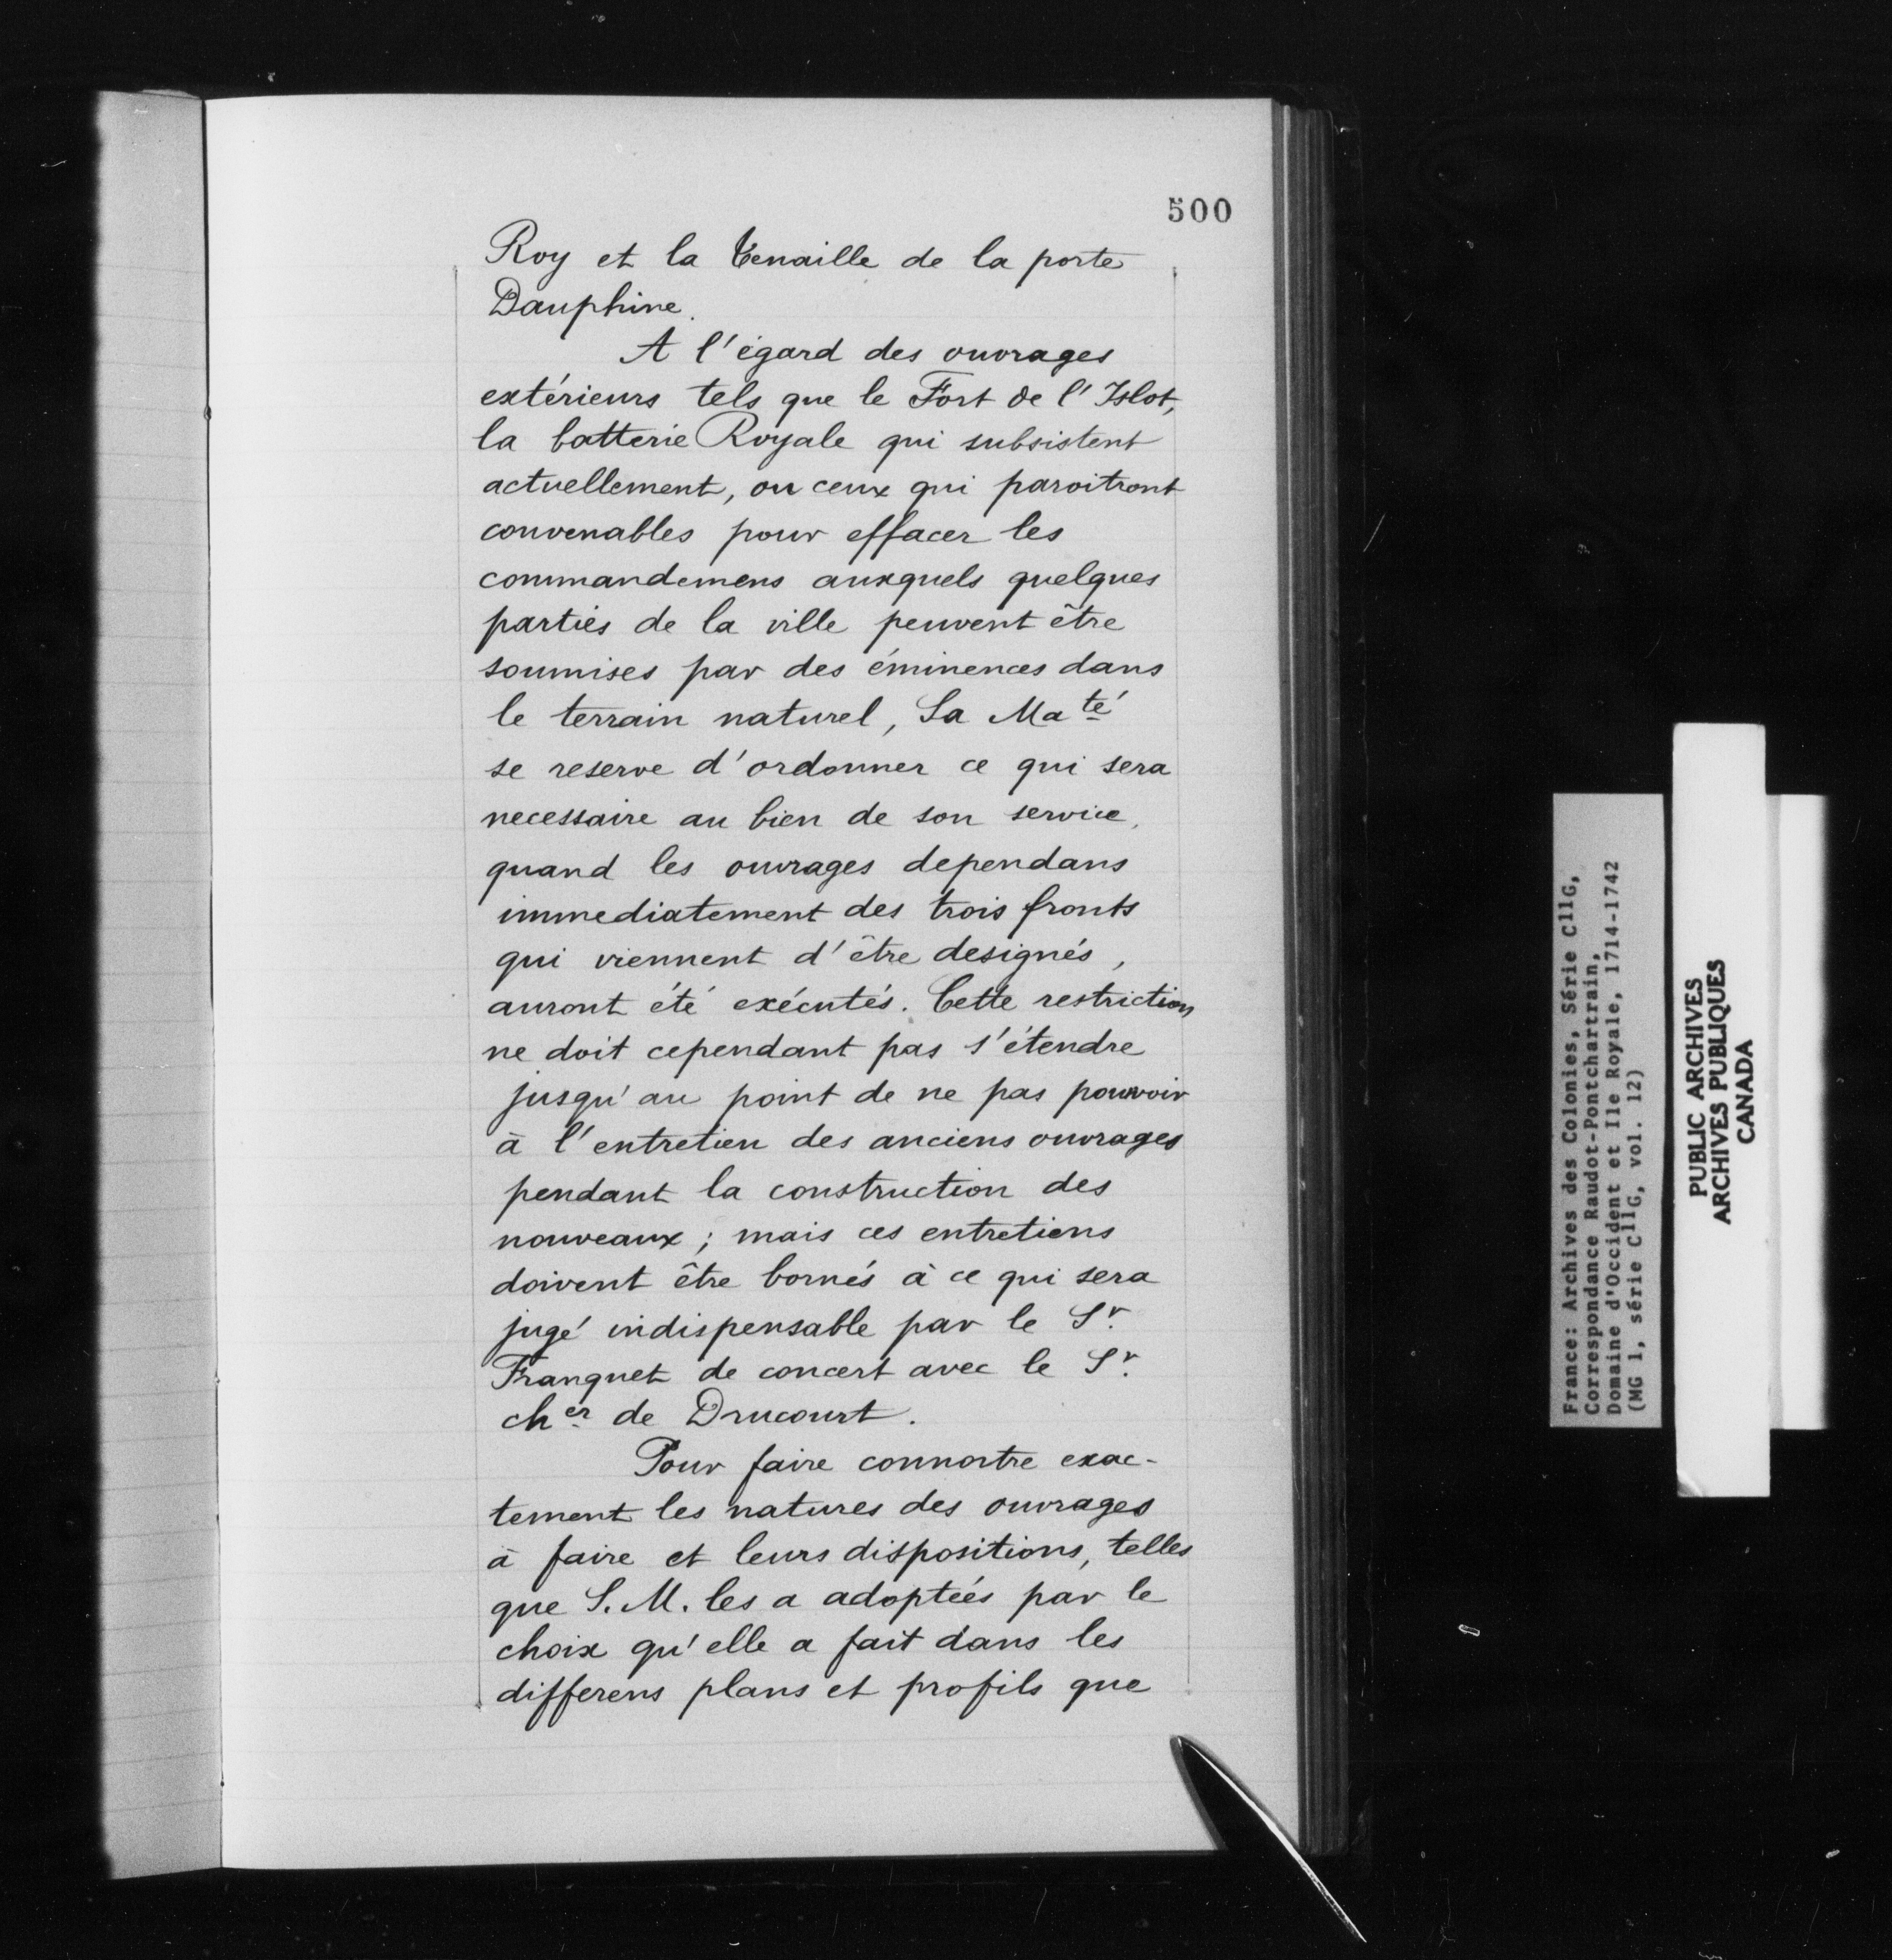 500
Roy et la Tenaille de la porte
Dauphine.
A l'égard des ouvrages
extérieurs tels que le Fort de l'Islot,
la batterie Royale qui subsistent
actuellement, ou ceux qui paroitront
convenables pour effacer les
commandemens auxquels quelques
parties de la ville peuvent être
soumises par des éminences dans
le terrain naturel, Sa Maté
se reserve d'ordonner ce qui sera
necessaire au bien de son service,
quand les ouvrages dependans
immediatement des trois fronts
qui viennent d'être designés,
auront été exécutés. Cette restriction
ne doit cependant pas s'étendre
jusqu'au point de ne pas pourvoir
à l'entretien des anciens ouvrages
pendant la construction des
nouveaux; mais ces entretiens
doivent être bornés à ce qui sera
jugé indispensable par le Sr.
Franquet de concert avec le Sr.
cher de Drucourt.
Pour faire connoitre exac-
tement les natures des ouvrages
à faire et leurs dispositions, telles
que S. M. les a adoptées par le
choix qu'elle a fait dans les
differens plans et profils que
France: Archives des Colonies, Série C11G,
Correspondance Raudot-Pontchartrain,
Domaine d'Occident et Ile Royale, 1714-1742
(MG 1, série C11G, vol. 12)
PUBLIC ARCHIVES
ARCHIVES PUBLIQUES
CANADA